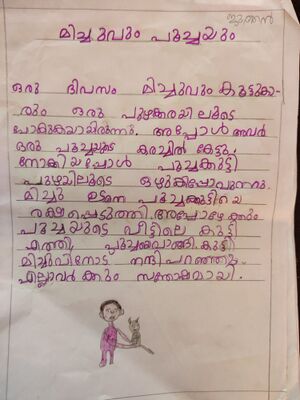 മിച്ചുവും പൂച്ചയും
ഒരു ദിവസം മിച്ചുവും കൂട്ടുകാ-
രും ഒരു പുഴക്കരയിലൂടെ
പോകുകയായിരുന്നു. അപ്പോൾ അവർ
ഒരു പൂച്ചയുടെ കരച്ചിൽ കേട്ടു.
നോക്കിയപ്പോൾ പൂച്ചക്കുട്ടി
പുഴയിലൂടെ ഒഴുകിപ്പോവുന്നു.
മിച്ചു ഉടനെ പൂച്ചക്കുട്ടിയെ
രക്ഷപ്പെടുത്തി. അപ്പോഴേക്കും
പൂച്ചയുടെ വീട്ടിലെ കുട്ടി
എത്തി. പൂച്ചയെവാങ്ങി കുട്ടി
മിച്ചുവിനോട് നന്ദി പറഞ്ഞു.
എല്ലാവർക്കും സന്തോഷമായി.